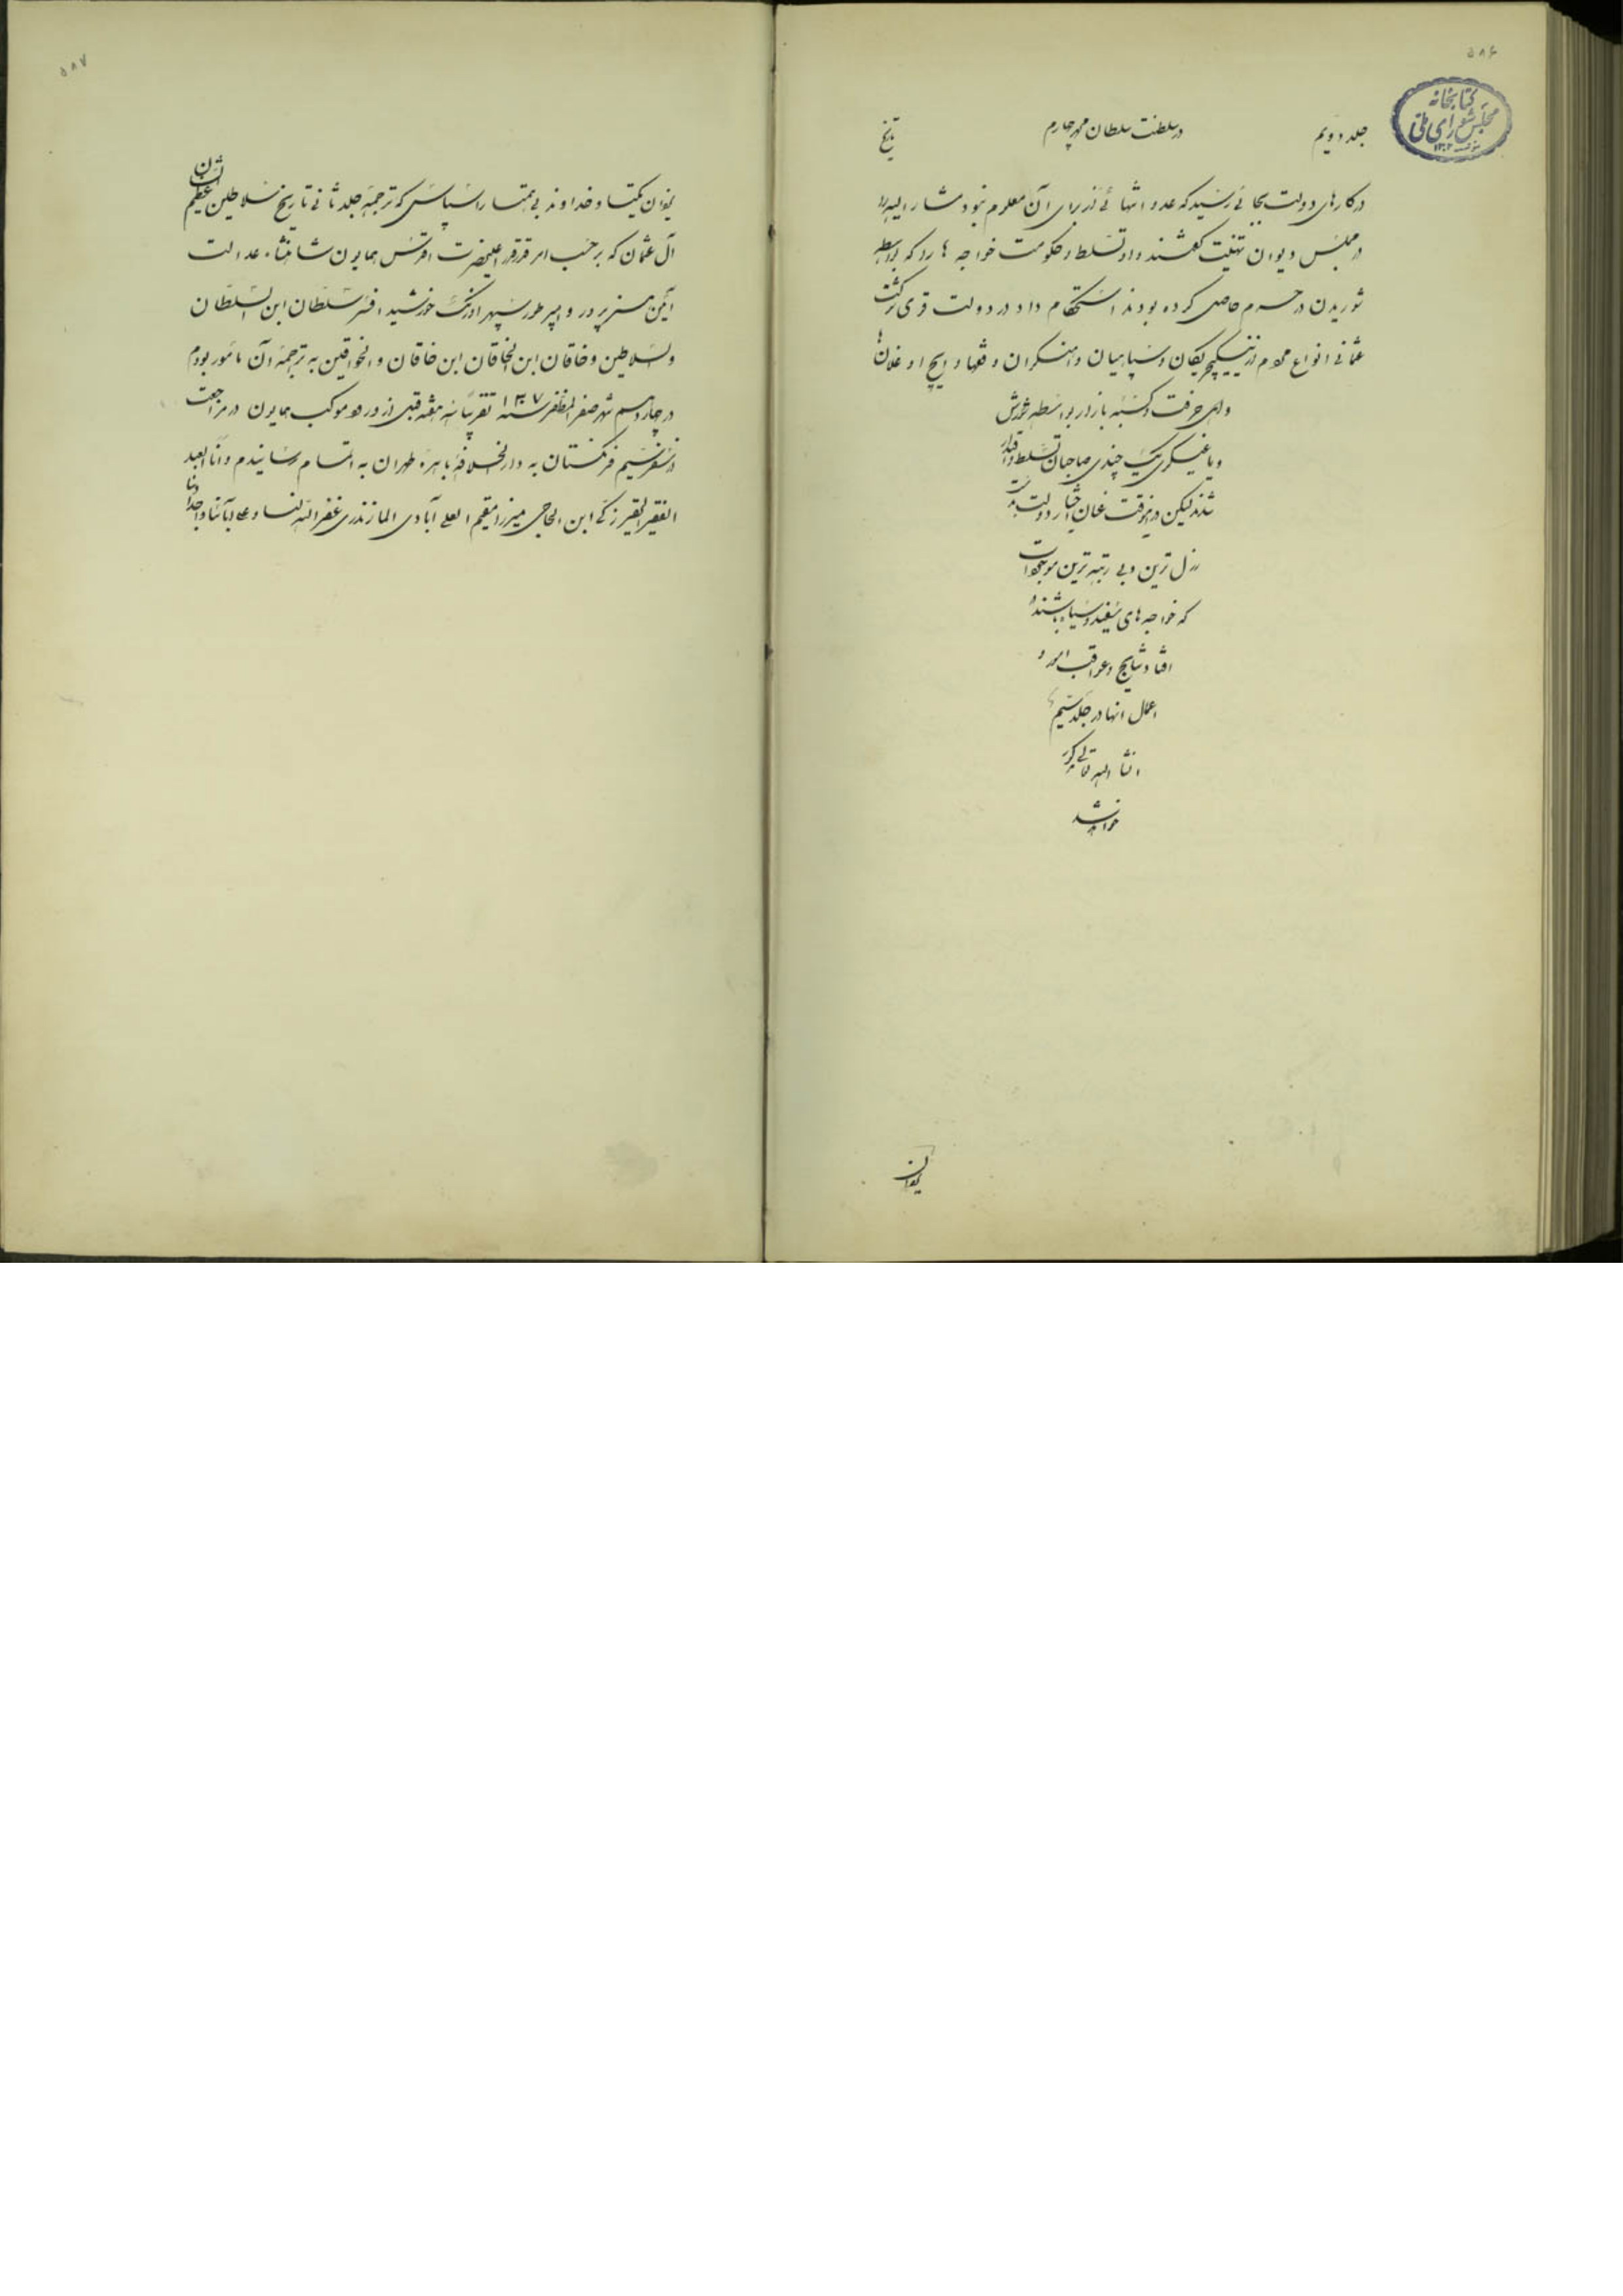 ۵۸۶
کتابخانه
مجلس شورای ملی
جلد دویم
در سلطنت سلطان محمد چهارم
تاریخ
در کارهای دولت بجائی رسید که حد و انتهائی از برای آن معلوم نبود مشار الیه را
در مجلس دیوان تهنیت گفتند و او تسلط و حکومت خواجه ها را که بواسطه
شوریدن در حرم حاصل کرده بودند استحکام داد در دولت قوی شوکت
عثمانی انواع مردم از ینیکچریکان و سپاهیان و فقها و ایچ اوغلانها
و اهل حرفت و کسبه بازار بواسطه شورش
و یاغیگری یک چندی صاحبان تسلط و اقتدار
شدند لیکن در آنوقت عنان اختیار دولت بدست
رذل ترین و بی رتبه ترین موجودات
که خواجه های سفید و سیاه باشند
افتاد و نتایج و عواقب امور و
اعمال آنها در جلد سیم
انشاء الله تعالی ذکر
خواهد شد
یزدان
۵۸۷
یزدان یکتا و خداوند بی همتا را سپاس که ترجمه جلد ثانی تاریخ سلاطین عظیم الشأن
آل عثمان که بر حسب امر قدر قدر اعلیحضرت اقدس همایون شاهنشاه عدالت
آئین هنرپرور و امپراطور سپهر اورنگ خورشید افسر سلطان ابن السلطان
و السلاطین و خاقان ابن الخاقان ابن خاقان و الخواقین به ترجمه آن مأمور بودم
در چهاردهم شهر صفر المظفر سنه ۱۳۰۷ تقریبا سه هفته قبل از ورود موکب همایون در مراجعت
از سفر سیم فرنگستان به دار الخلافه باهره طهران به اتمام رسانیدم و انا العبد
الفقیر الحقیر زکی ابن الحاجی میرزا مقیم العلی آبادی المازندرانی غفر الله لنا و لآبائنا و اجدادنا